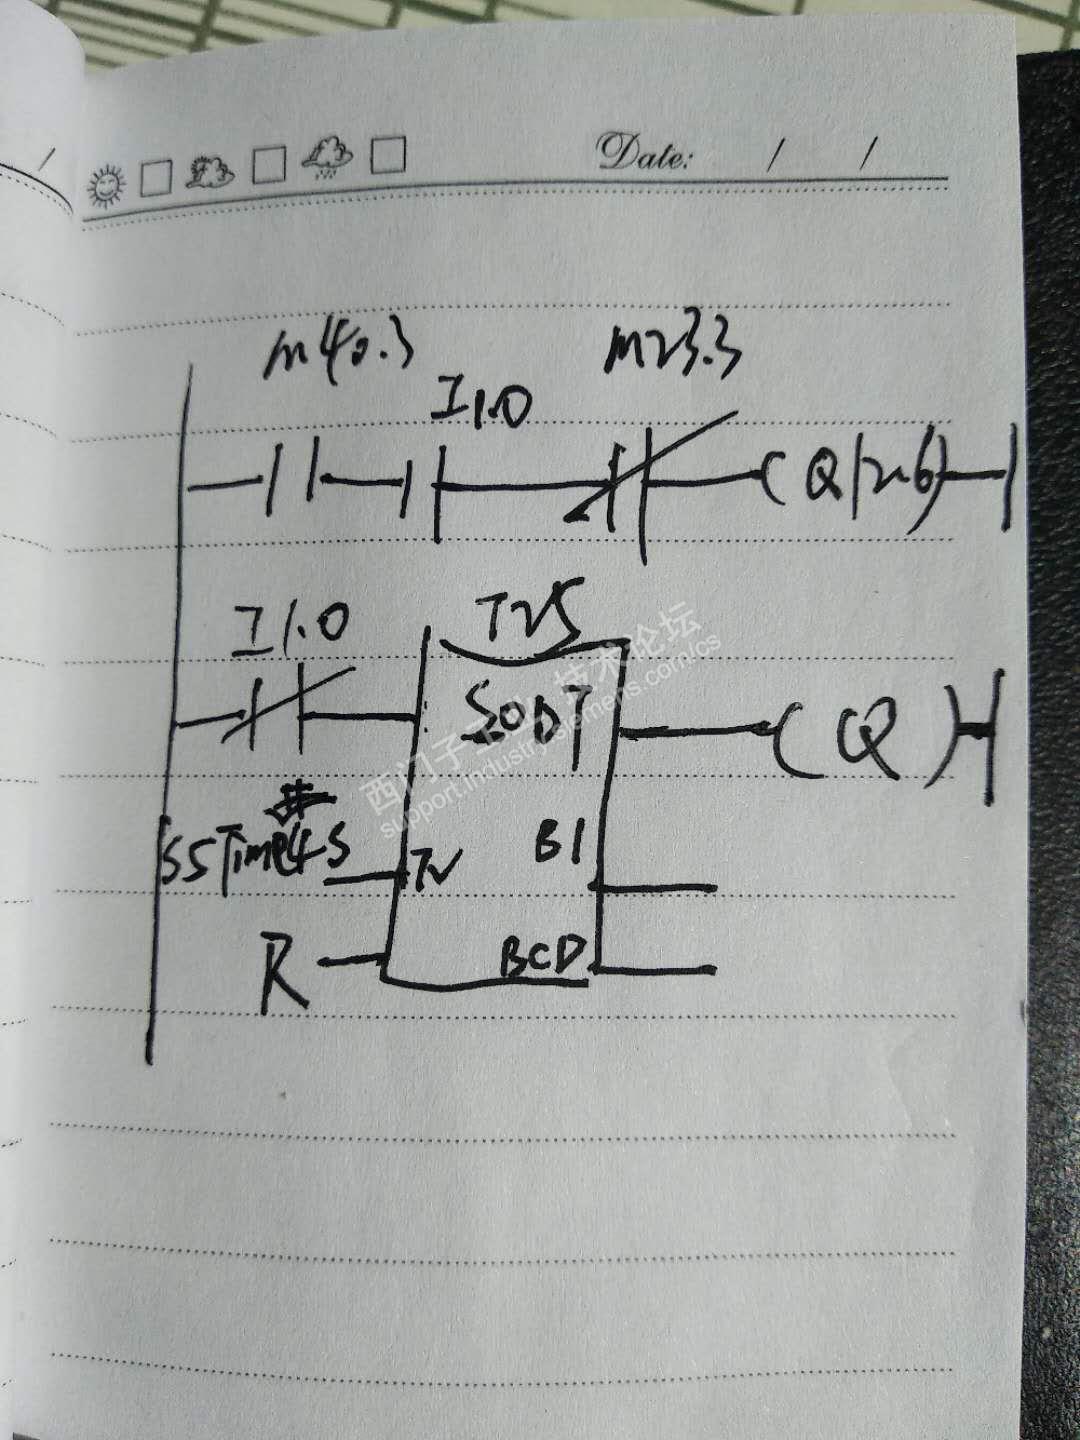 Date: / /
M40.3 M23.3
I1.0
(Q12.6)
I1.0 T25
SODT (Q)
S5Time#4S TV BI
R BCD
西门子工业技术论坛
support.industry.siemens.com/cs